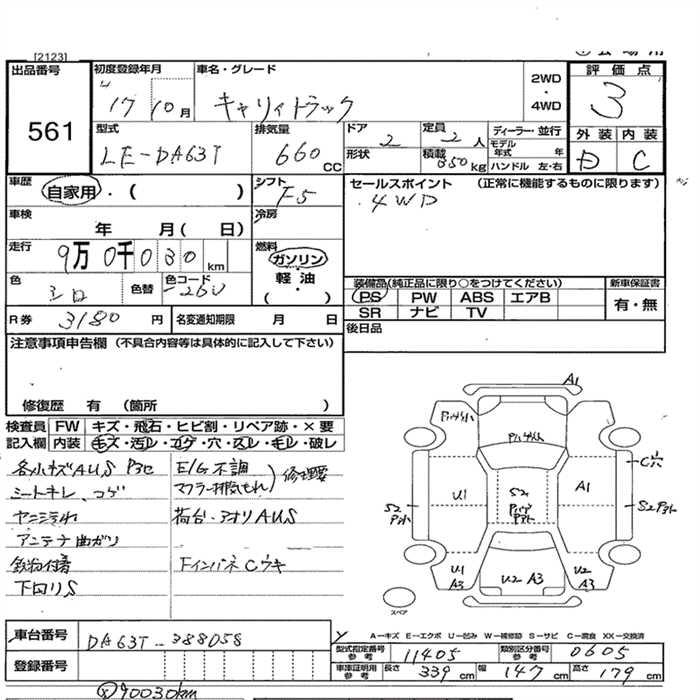 [2123]
出品番号
561
初度登録年月
17 10月
車名・グレード
キャリィトラック
2WD
・
4WD
評価点
3
外装 内装
D C
型式
LE-DA63T
排気量
660 CC
ドア
2
形状
定員
2 人
積載
350 kg
ディーラー・並行
モデル年式 年
ハンドル 左・右
車歴
自家用・( )
シフト
F5
セールスポイント (正常に機能するものに限ります)
4WD
車検
年 月( 日)
冷房
走行
9万0千030 km
燃料
ガソリン
軽油
・
( )
色
シロ
色替
色コード
26U
装備品(純正品に限り○をつけてください)
PS PW ABS エアB
SR ナビ TV
新車保証書
有・無
R券 3180 円
名変通知期限 月 日
後日品
注意事項申告欄 (不具合内容等は具体的に記入して下さい)
修復歴 有 (箇所 )
検査員 FW キズ・飛石・ヒビ割・リペア跡・×要
記入欄 内装 キズ・汚レ・コゲ・穴・スレ・モレ・破レ
各小キズAUS
シートキレ、コゲ
ヤニヨゴレ
アンテナ曲ガリ
鉄粉付着
下回リS
E/G不調
マフラー排気もれ
修理要
荷台・アオリAUS
FインパネCウキ
A1
U1
A1
C穴
S2
S2
S2
U1
A3
U2 A3
U2
A3
スペア
車台番号
DA63T-388058
登録番号
A-キズ E-エクボ U-凹み W-補修跡 S-サビ C-腐食 XX-交換済
型式指定番号
参考
11405
類別区分番号
参考
0605
車庫証明用
参考
長さ 339 cm 幅 147 cm 高さ 179 cm
90030km